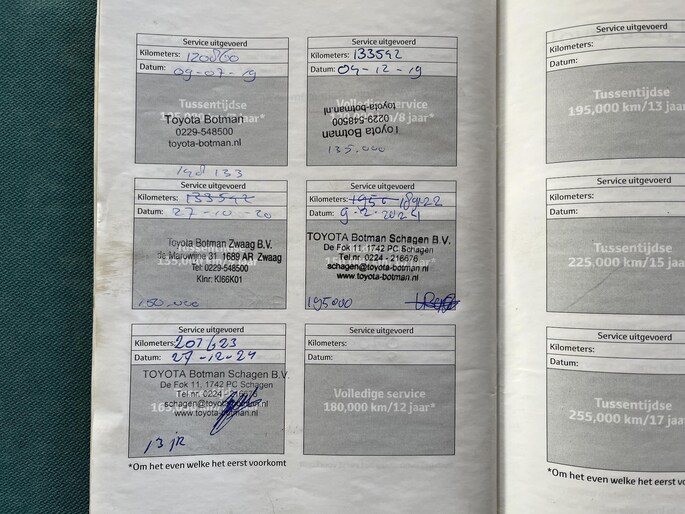 Service uitgevoerd
Kilometers: 120860
Datum: 09-07-19
Tussentijdse
Toyota Botman
0229-548500
toyota-botman.nl
Service uitgevoerd
Kilometers: 133542
Datum: 04-12-19
Volledige service
Toyota Botman
0229-548500
toyota-botman.nl
135.000
148 133
Service uitgevoerd
Kilometers: 133542
Datum: 27-10-20
Toyota Botman Zwaag B.V.
de Marowijne 31 1689 AR Zwaag
Tel: 0229-548500
Klnr: KI66K01
150.000
Service uitgevoerd
Kilometers: 189122
Datum: 9-2-2024
TOYOTA Botman Schagen B.V.
De Fok 11, 1742 PC Schagen
Tel.nr. 0224 - 216676
schagen@toyota-botman.nl
www.toyota-botman.nl
195000
Service uitgevoerd
Kilometers: 201623
Datum: 27-12-24
TOYOTA Botman Schagen B.V.
De Fok 11, 1742 PC Schagen
Tel.nr. 0224 - 216676
schagen@toyota-botman.nl
www.toyota-botman.nl
13 jr
Service uitgevoerd
Kilometers:
Datum:
Volledige service
180,000 km/12 jaar*
*Om het even welke het eerst voorkomt
Service uitgevoerd
Kilometers:
Datum:
Tussentijdse
195,000 km/13 jaar
Service uitgevoerd
Kilometers:
Datum:
Tussentijdse
225,000 km/15 jaar
Service uitgevoerd
Kilometers:
Datum:
Tussentijdse
255,000 km/17 jaar
*Om het even welke het eerst